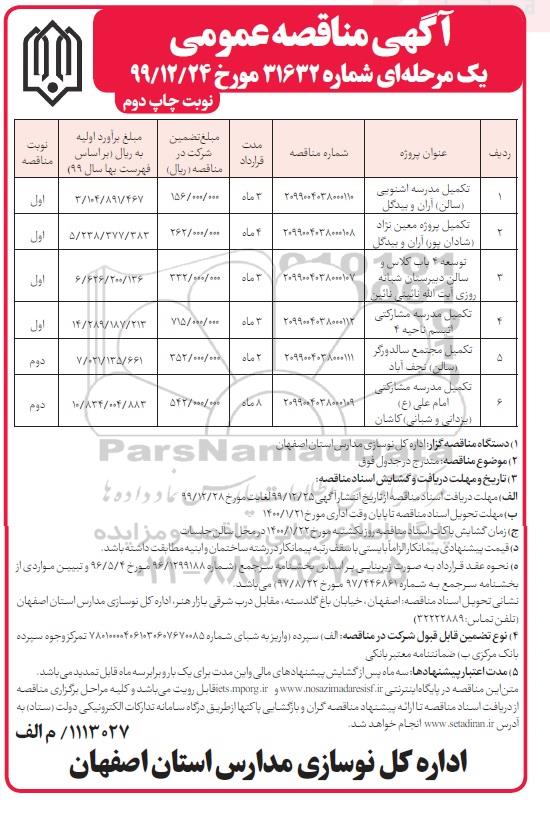 آگهی مناقصه عمومی
یک مرحله‌ای شماره ۳۱۶۳۲ مورخ ۹۹/۱۲/۲۴
نوبت چاپ دوم
ردیف | عنوان پروژه | شماره مناقصه | مدت قرارداد | مبلغ تضمین شرکت در مناقصه (ریال) | مبلغ برآورد اولیه به ریال (بر اساس فهرست بها سال ۹۹) | نوبت مناقصه
۱ | تکمیل مدرسه اشنویی (سالن) آران و بیدگل | ۲۰۹۹۰۰۴۰۳۸۰۰۰۱۱۰ | ۳ ماه | ۱۵۶/۰۰۰/۰۰۰ | ۳/۱۰۴/۸۹۱/۴۶۷ | اول
۲ | تکمیل پروژه معین نژاد (شادان پور) آران و بیدگل | ۲۰۹۹۰۰۴۰۳۸۰۰۰۱۰۸ | ۴ ماه | ۲۶۲/۰۰۰/۰۰۰ | ۵/۲۳۸/۳۷۷/۳۸۳ | اول
۳ | توسعه ۴ باب کلاس و سالن دبیرستان شبانه روزی آیت الله نائینی نائین | ۲۰۹۹۰۰۴۰۳۸۰۰۰۱۰۷ | ۳ ماه | ۳۳۲/۰۰۰/۰۰۰ | ۶/۶۲۶/۲۰۰/۱۳۶ | اول
۴ | تکمیل مدرسه مشارکتی اتیسم ناحیه ۴ | ۲۰۹۹۰۰۴۰۳۸۰۰۰۱۱۲ | ۳ ماه | ۷۱۵/۰۰۰/۰۰۰ | ۱۴/۲۸۹/۱۸۷/۲۱۳ | اول
۵ | تکمیل مجتمع سالدورگر (سالن) نجف آباد | ۲۰۹۹۰۰۴۰۳۸۰۰۰۱۱۱ | ۲ ماه | ۳۵۲/۰۰۰/۰۰۰ | ۷/۰۲۱/۱۳۵/۶۶۱ | دوم
۶ | تکمیل مدرسه مشارکتی امام علی (ع) (یزدانی و شبانی) کاشان | ۲۰۹۹۰۰۴۰۳۸۰۰۰۱۰۹ | ۸ ماه | ۵۴۲/۰۰۰/۰۰۰ | ۱۰/۸۳۴/۰۰۴/۸۸۳ | دوم
۱) دستگاه مناقصه گزار: اداره کل نوسازی مدارس استان اصفهان
۲) موضوع مناقصه: مندرج در جدول فوق
۳) تاریخ و مهلت دریافت و گشایش اسناد مناقصه:
الف) مهلت دریافت اسناد مناقصه از تاریخ انتشار آگهی ۹۹/۱۲/۲۵ لغایت مورخ ۹۹/۱۲/۲۸
ب) مهلت تحویل اسناد مناقصه تا پایان وقت اداری مورخ ۱۴۰۰/۱/۲۱
ج) زمان گشایش پاکات اسناد مناقصه روز یکشنبه مورخ ۱۴۰۰/۱/۲۲ در محل سالن جلسات
د) قیمت پیشنهادی پیمانکار الزاماً بایستی با سقف رتبه پیمانکار در رشته ساختمان و ابنیه مطابقت داشته باشد.
ه) نحوه عقد قرارداد به صورت زیربنایی بر اساس بخشنامه سرجمع (شماره ۹۶/۱۲۹۹۱۸۸ مورخ ۹۶/۵/۴ و تبیین مواردی از
بخشنامه سرجمع به شماره ۹۷/۴۴۶۸۶۱ مورخ ۹۷/۸/۲۲) می باشد.
نشانی تحویل اسناد مناقصه: اصفهان، خیابان باغ گلدسته، مقابل درب شرقی بازار هنر، اداره کل نوسازی مدارس استان اصفهان
(تلفن تماس: ۳۲۲۲۲۸۸۹)
۴) نوع تضمین قابل قبول شرکت در مناقصه: الف) سپرده (واریز به شبای شماره ۷۸۰۱۰۰۰۰۴۰۶۱۰۳۰۶۰۷۶۷۰۰۸۵ تمرکز وجوه سپرده
بانک مرکزی ب) ضمانتنامه معتبر بانکی
۵) مدت اعتبار پیشنهادها: سه ماه پس از گشایش پیشنهادهای مالی و این مدت برای یک بار و برابر سه ماه قابل تمدید می باشد.
متن این مناقصه در پایگاه اینترنتی www.nosazimadaresisf.ir و iets.mporg.ir قابل رویت می باشد و کلیه مراحل برگزاری مناقصه
از دریافت اسناد مناقصه تا ارائه پیشنهاد مناقصه گران و بازگشایی پاکتها از طریق درگاه سامانه تدارکات الکترونیکی دولت (ستاد) به
آدرس www.setadiran.ir انجام خواهد شد.
۱۱۱۳۰۲۷/ م الف
اداره کل نوسازی مدارس استان اصفهان
ParsNamadData